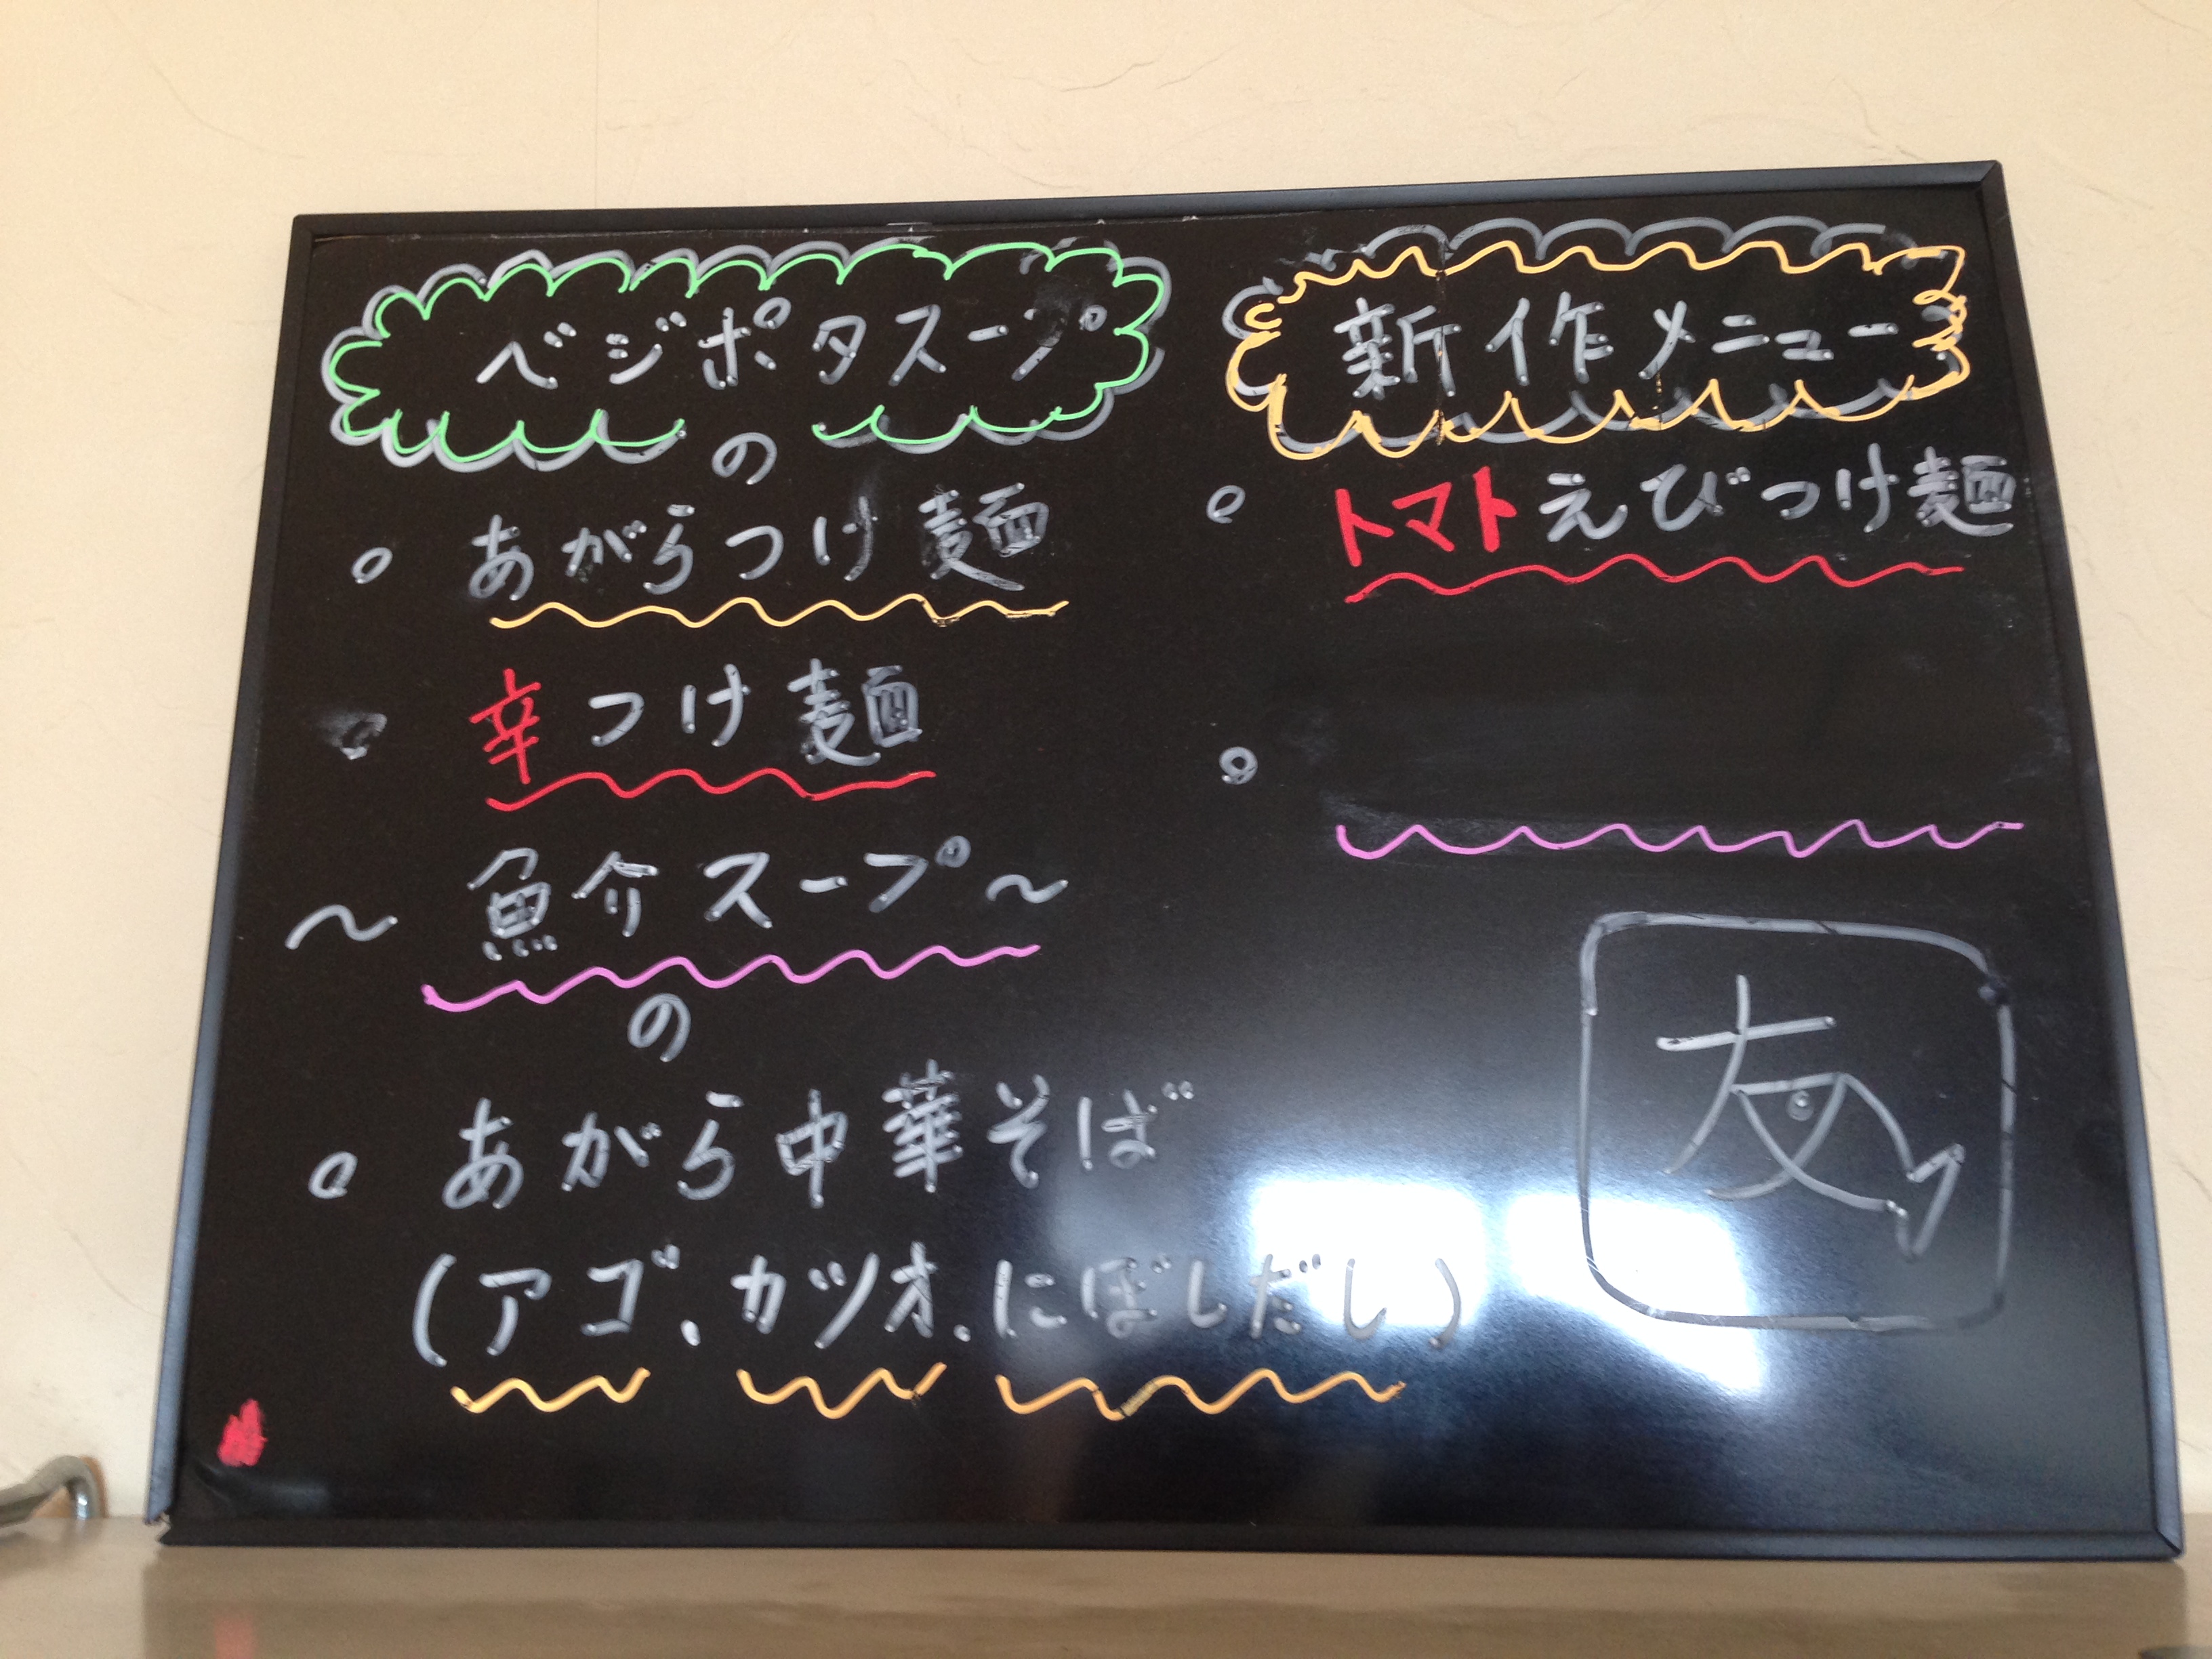 ベジポタスープ
の
。あがらつけ麺
。辛つけ麺
~魚介スープ~
の
。あがら中華そば
(アゴ、カツオ、にぼしだし)
新作メニュー
。トマトえびつけ麺
。
友